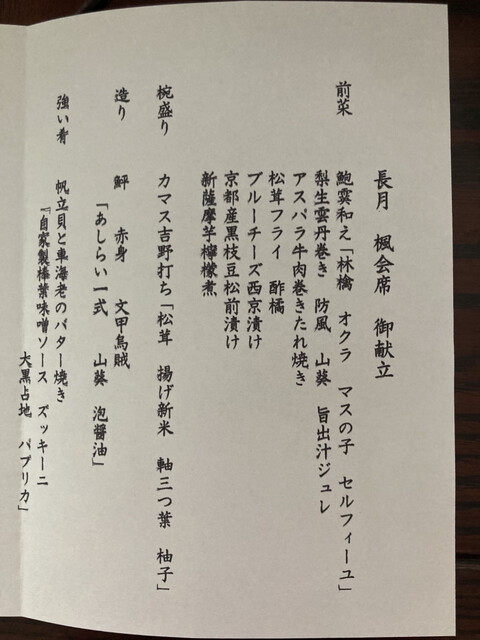 長月　楓会席　御献立
前菜
鮑霙和え「林檎　オクラ　マスの子　セルフィーユ」
梨生雲丹巻き　防風　山葵　旨出汁ジュレ
アスパラ牛肉巻きたれ焼き
松茸フライ　酢橘
ブルーチーズ西京漬け
京都産黒枝豆松前漬け
新薩摩芋檸檬煮
椀盛り　カマス吉野打ち「松茸　揚げ新米　軸三つ葉　柚子」
造り　鮃　赤身　文甲烏賊
「あしらい一式　山葵　泡醤油」
強い肴　帆立貝と車海老のバター焼き
『自家製棒葉味噌ソース　ズッキーニ
大黒占地　パプリカ」